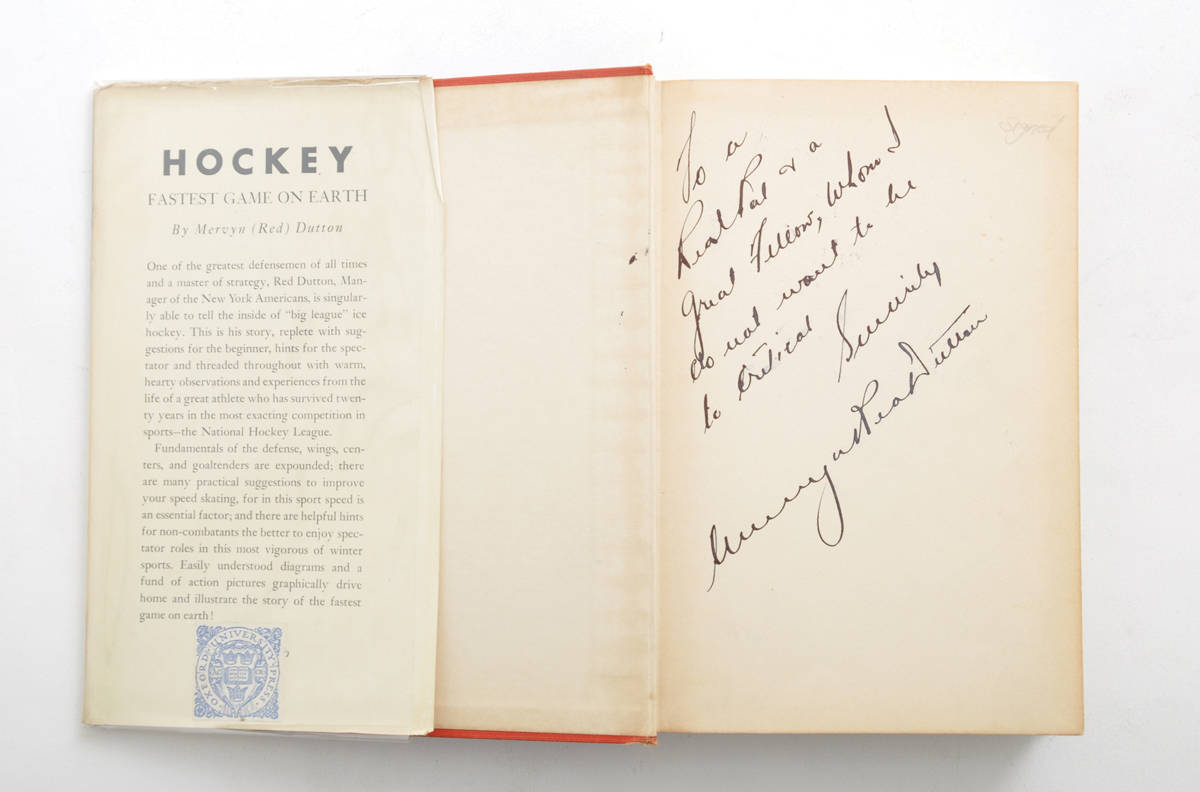 HOCKEY
FASTEST GAME ON EARTH
By Mervyn (Red) Dutton
One of the greatest defensemen of all times
and a master of strategy, Red Dutton, Man-
ager of the New York Americans, is singular-
ly able to tell the inside of "big league" ice
hockey. This is his story, replete with sug-
gestions for the beginner, hints for the spec-
tator and threaded throughout with warm,
hearty observations and experiences from the
life of a great athlete who has survived twen-
ty years in the most exacting competition in
sports—the National Hockey League.
Fundamentals of the defense, wings, cen-
ters, and goaltenders are expounded; there
are many practical suggestions to improve
your speed skating, for in this sport speed is
an essential factor; and there are helpful hints
for non-combatants the better to enjoy spec-
tator roles in this most vigorous of winter
sports. Easily understood diagrams and a
fund of action pictures graphically drive
home and illustrate the story of the fastest
game on earth!
OXFORD UNIVERSITY PRESS
Signed
To a
Real Pal & a
Great Fellow, Whom I
do not want to be
to critical
Sincerely
Mervyn Red Dutton